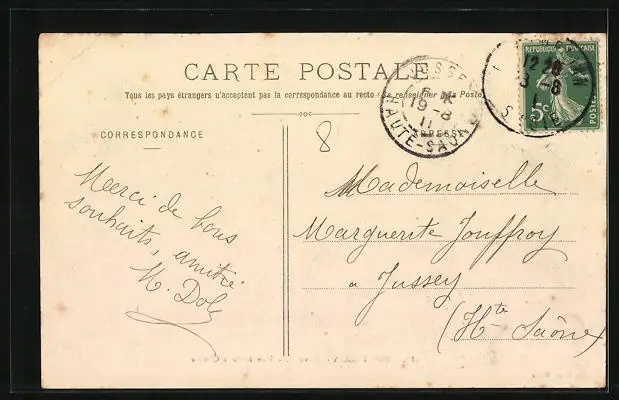 CARTE POSTALE
Tous les pays étrangers n'acceptent pas la correspondance au recto (Se renseigner à la Poste)
CORRESPONDANCE
ADRESSE
JUSSEY
19-8
11
HAUTE-SAÔNE
12
8-8
REPUBLIQUE FRANÇAISE
5c
POSTES
8
Merci de bons
souhaits, amitié
M. Dole
Mademoiselle
Marguerite Jouffroy
a Jussey
(Hte Saône)